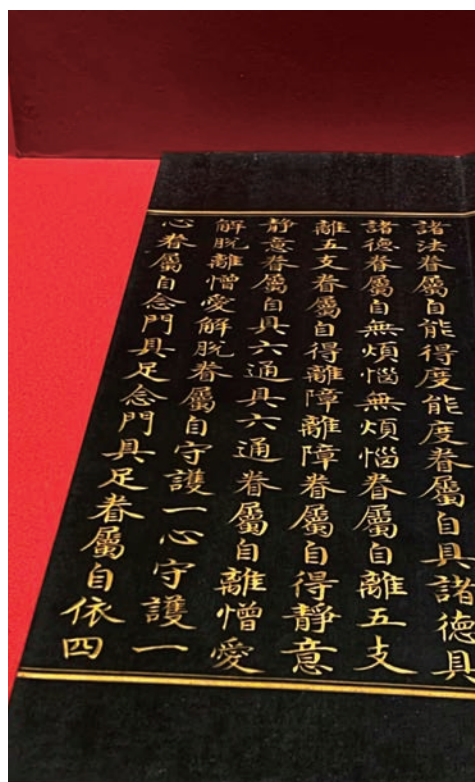 諸法眷屬自能得度能度眷屬自具諸德具
諸德眷屬自無煩惱無煩惱眷屬自離五支
離五支眷屬自得離障離障眷屬自得靜意
靜意眷屬自具六通具六通眷屬自離憎愛
解脫離憎愛解脫眷屬自守護一心守護一
心眷屬自念門具足念門具足眷屬自依四